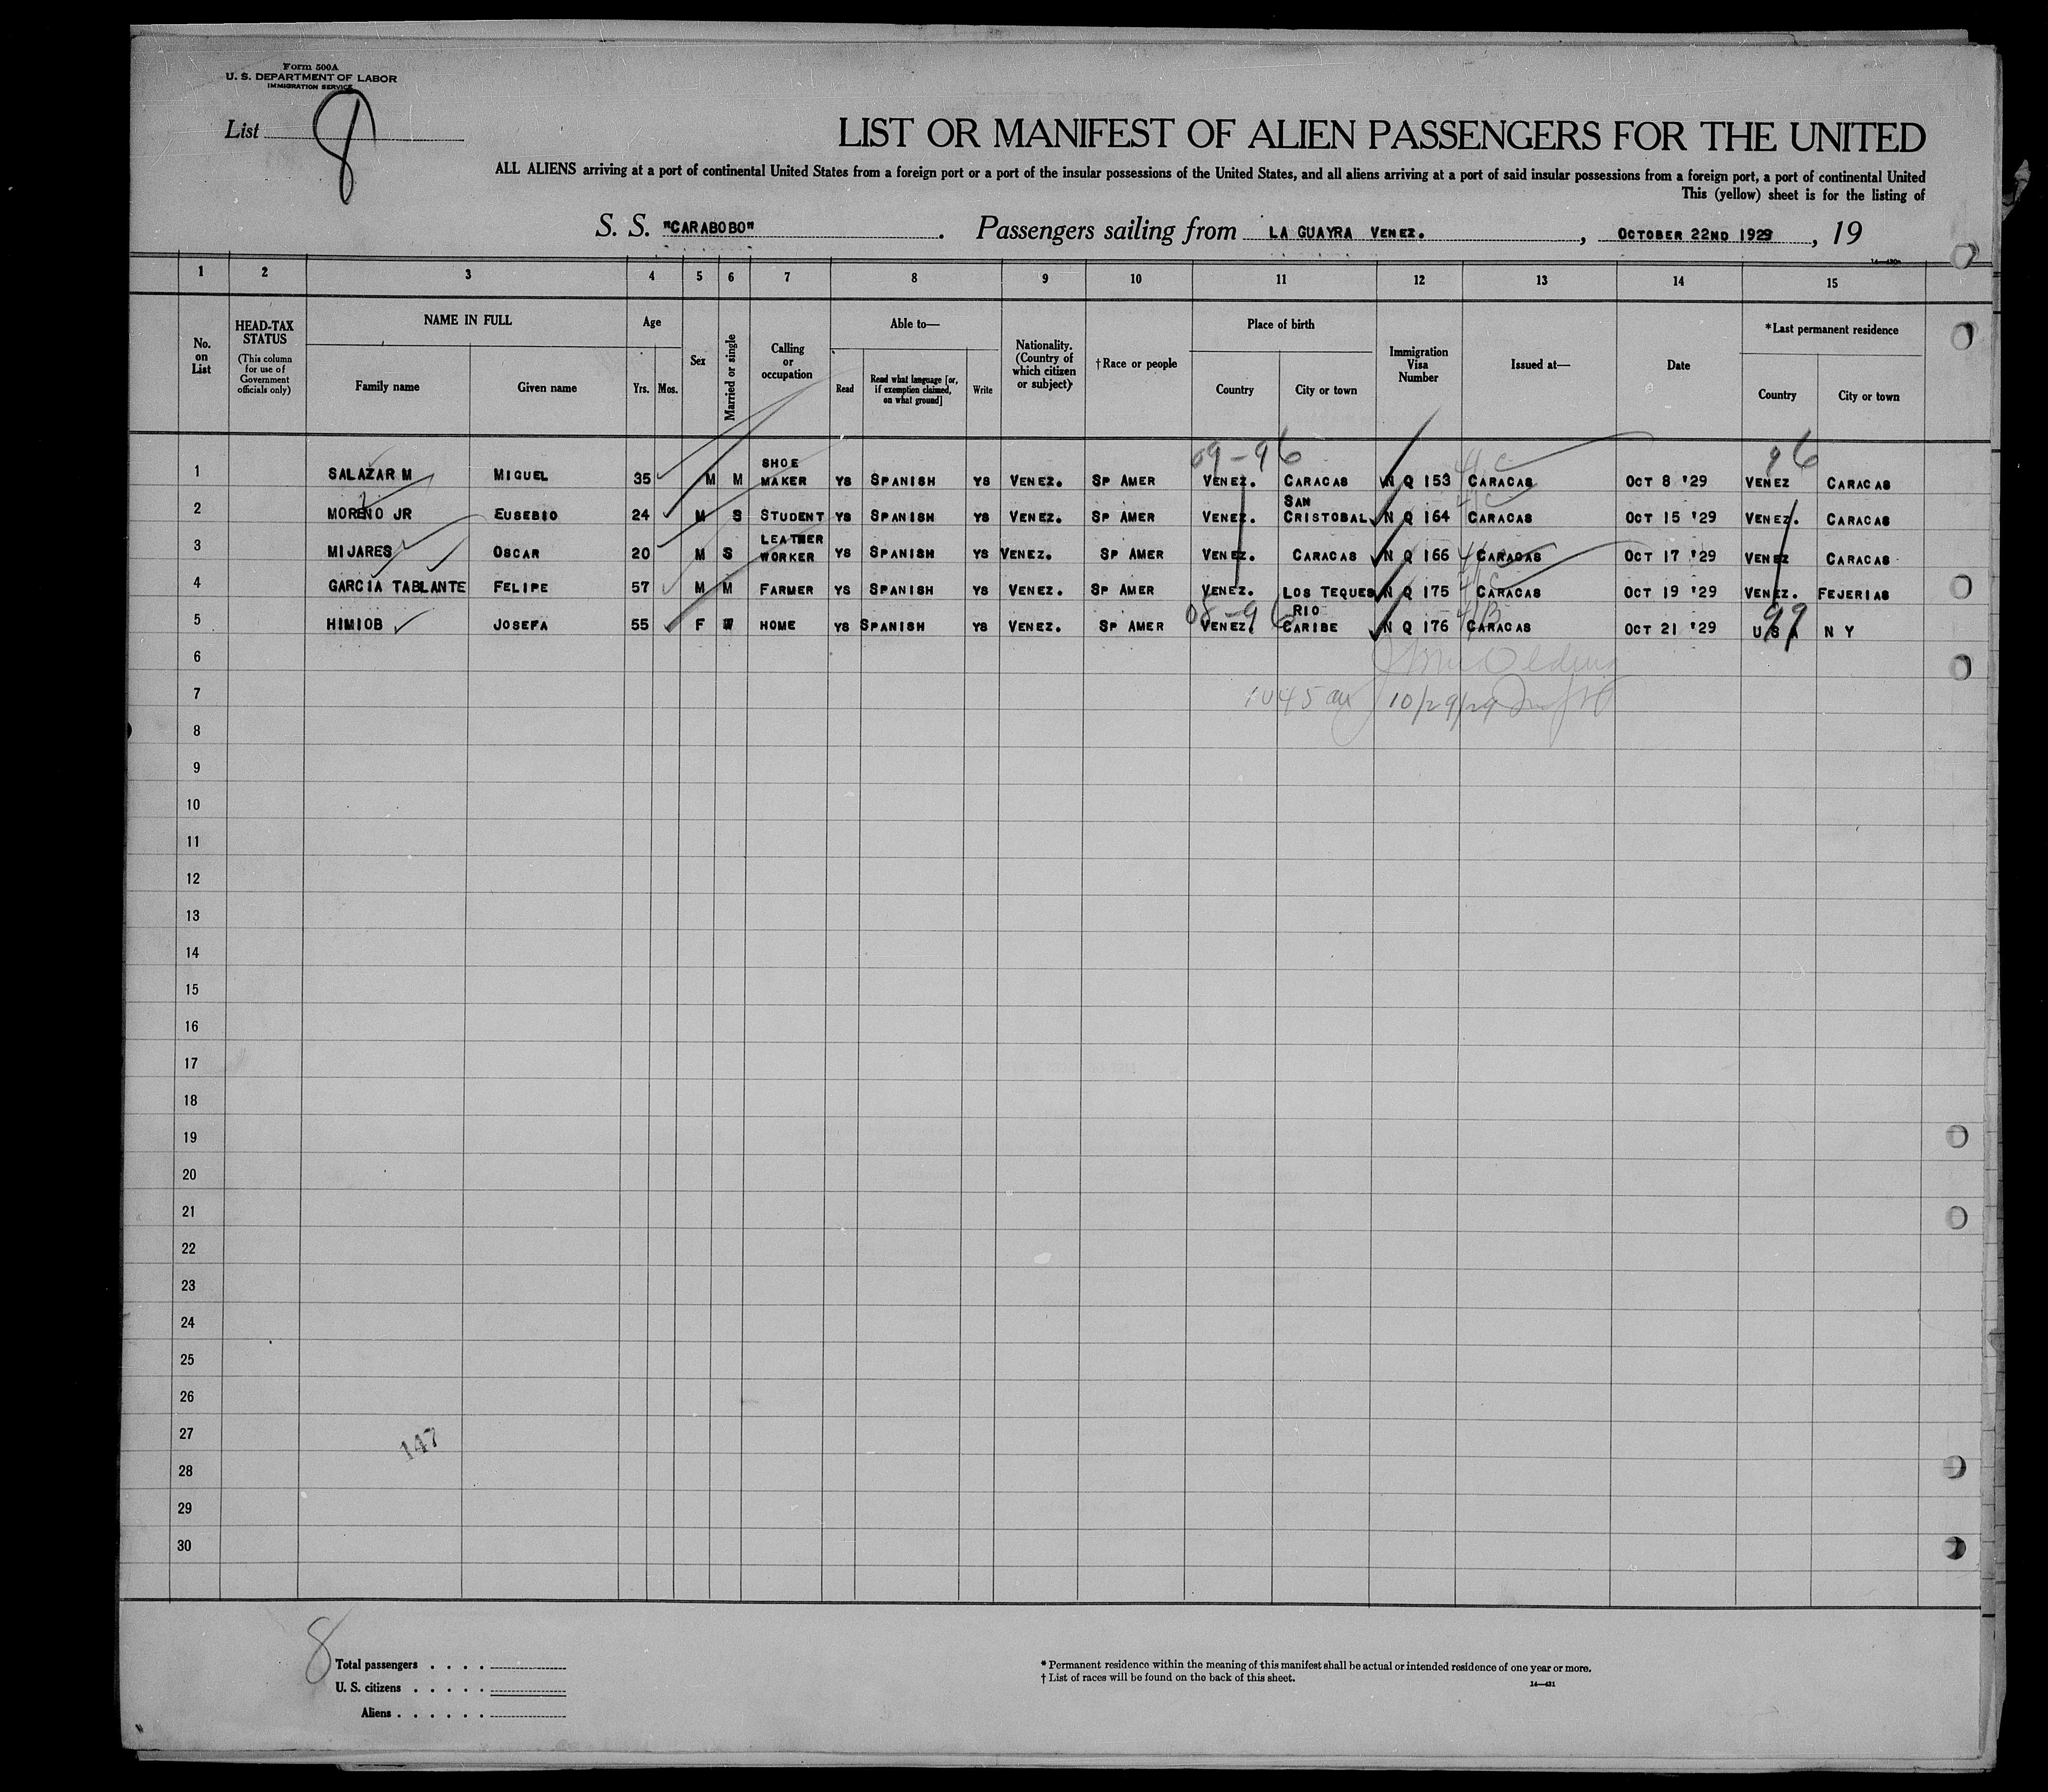 Form 500A
U. S. DEPARTMENT OF LABOR
IMMIGRATION SERVICE
List 8
LIST OR MANIFEST OF ALIEN PASSENGERS FOR THE UNITED
ALL ALIENS arriving at a port of continental United States from a foreign port or a port of the insular possessions of the United States, and all aliens arriving at a port of said insular possessions from a foreign port, a port of continental United
This (yellow) sheet is for the listing of
S. S. "CARABOBO". Passengers sailing from LA GUAYRA VENEZ., OCTOBER 22ND 1929, 19
1 2 3 4 5 6 7 8 9 10 11 12 13 14 15
No. on List
HEAD-TAX STATUS (This column for use of Government officials only)
NAME IN FULL
Family name Given name
Age
Yrs. Mos.
Sex
Married or single
Calling or occupation
Able to—
Read
Read what language [or, if exemption claimed, on what ground]
Write
Nationality. (Country of which citizen or subject)
†Race or people
Place of birth
Country City or town
Immigration Visa Number
Issued at—
Date
*Last permanent residence
Country City or town
09-96 96
1 SALAZAR M MIGUEL 35 M M SHOE MAKER YS SPANISH YS VENEZ. SP AMER VENEZ. CARACAS N Q 153 4/C CARACAS OCT 8 '29 VENEZ CARACAS
2 MORENO JR EUSEBIO 24 M S STUDENT YS SPANISH YS VENEZ. SP AMER VENEZ. SAN CRISTOBAL N Q 164 4/C CARACAS OCT 15 '29 VENEZ. CARACAS
3 MIJARES OSCAR 20 M S LEATHER WORKER YS SPANISH YS VENEZ. SP AMER VENEZ. CARACAS N Q 166 CARACAS OCT 17 '29 VENEZ CARACAS
4 GARCIA TABLANTE FELIPE 57 M M FARMER YS SPANISH YS VENEZ. SP AMER VENEZ. LOS TEQUES N Q 175 4/C CARACAS OCT 19 '29 VENEZ. FEJERIAS
5 HIMIOB JOSEFA 55 F W HOME YS SPANISH YS VENEZ. SP AMER VENEZ. RIO CARIBE N Q 176 4/B CARACAS OCT 21 '29 U S A N Y
99
6
7 1045 am 10/29/29
8
9
10
11
12
13
14
15
16
17
18
19
20
21
22
23
24
25
26
27
147
28
29
30
8
Total passengers . . . .
U. S. citizens . . . . .
Aliens . . . . . .
* Permanent residence within the meaning of this manifest shall be actual or intended residence of one year or more.
† List of races will be found on the back of this sheet.
14—431